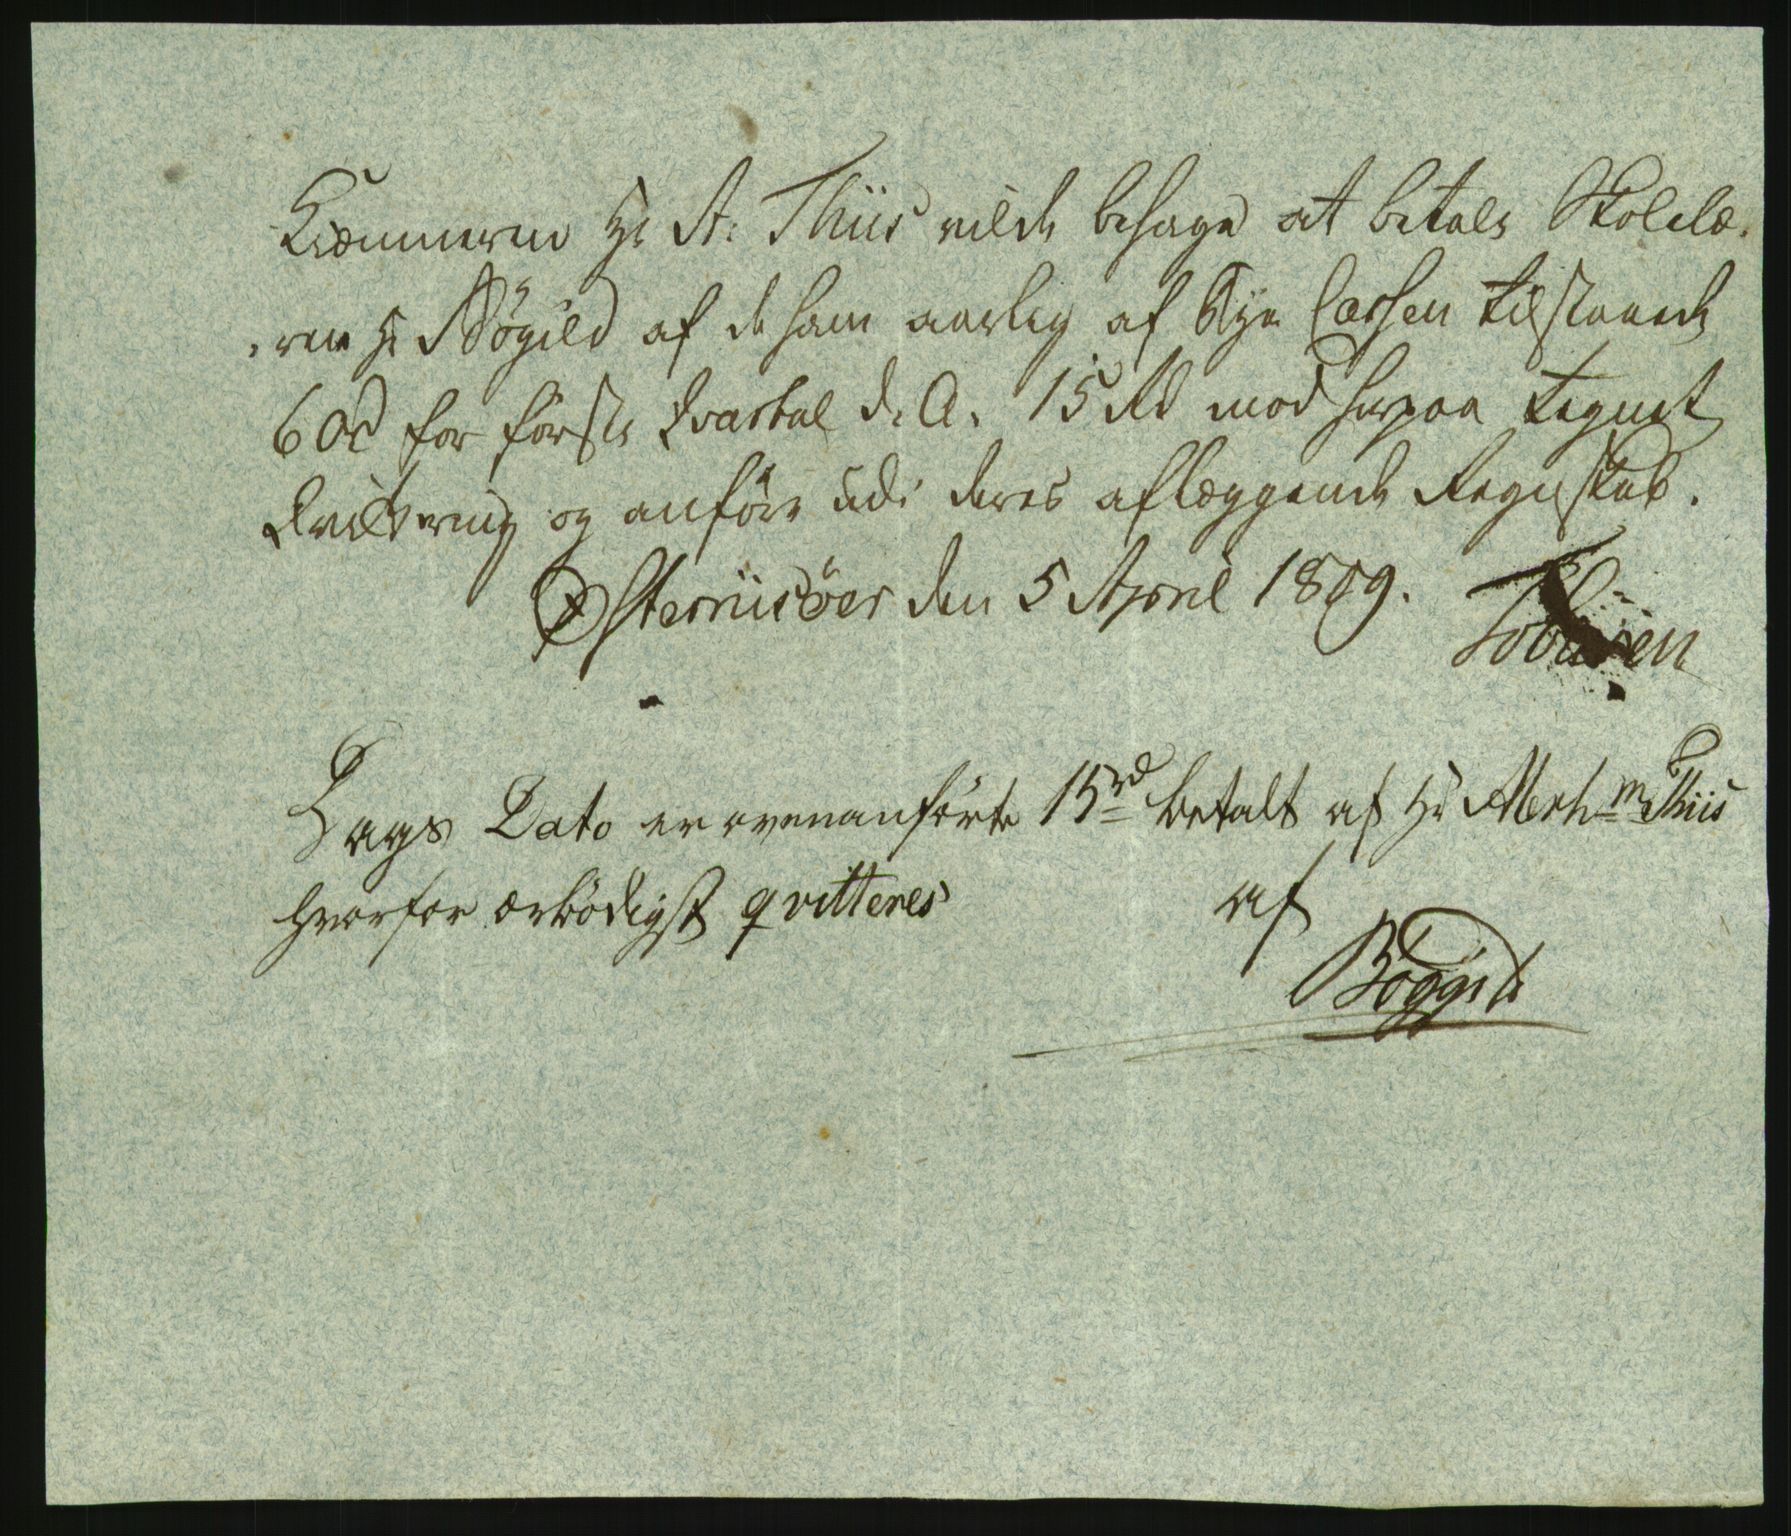 Kiæmneren Hr A: Thiis vilde behage at betale Skolelæ-
-ren Hr Bøgild af de ham aarlig af Bye Cassen tilstaaede
60rd for første Qvartal d. A. 15 Rd mod herpaa tegnet
Qvittering og anføre udi deres aflæggende Regnskab.
Østerriisöer den 5 April 1809.
Dags Dato er ovenanførte 15rd betalt af Hr A Thiis
hvorfor ærbödigst qvitteres af
Bøggild